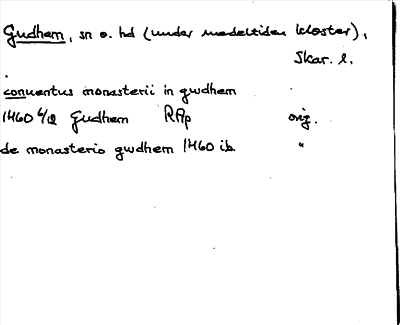 Gudhem, sn o. hd (under medeltiden kloster),
Skar. l.
conuentus monasterii in gwdhem
1460 6/12 Gudhem RAp orig.
de monasterio gwdhem 1460 ib. "